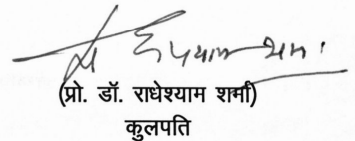 (प्रो. डॉ. राधेश्याम शर्मा)
कुलपति